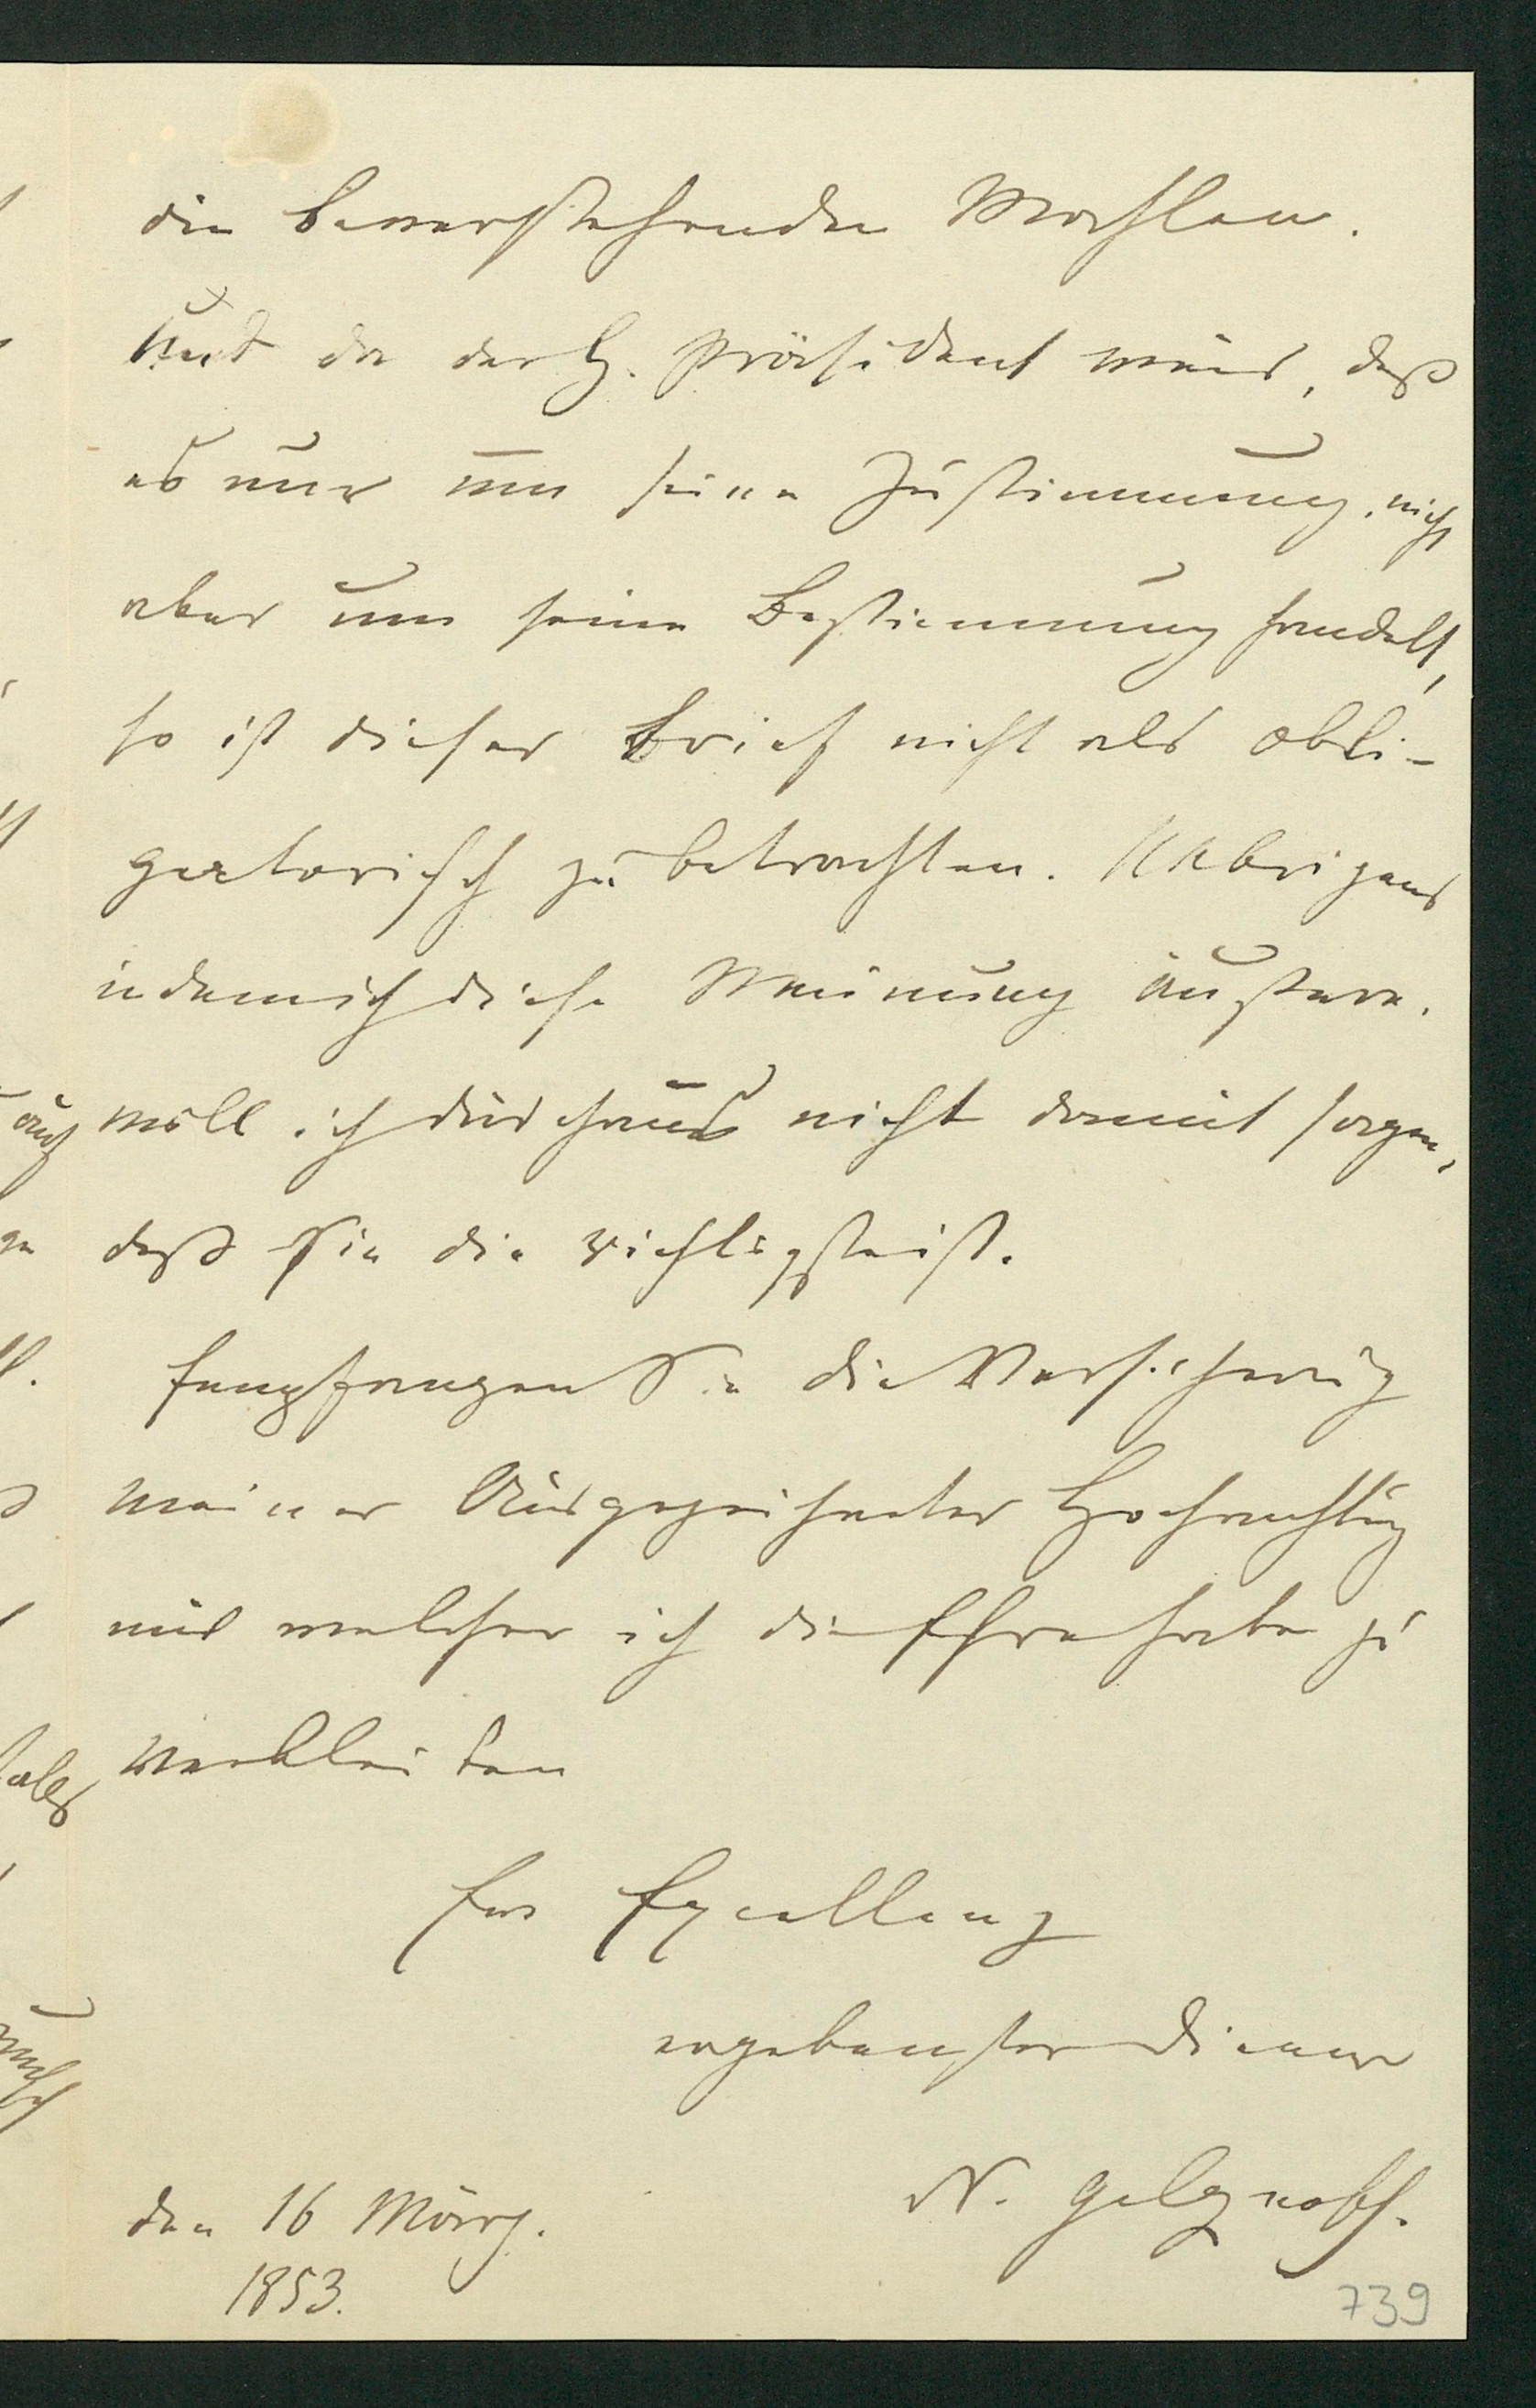 die bevorstehenden Wahlen.
Und da der H. Präsident weis, daß
es nur um seine Zustimmung, nicht
aber um seine Bestimmung handelt,
so ist dieser Brief nicht als obli-
gatorisch zu betrachten. Uebrigens
indem ich diese Meinung äußere,
will ich durchaus nicht damit sagen,
daß sie die richtigste ist.
Empfangen Sie die Versicherung
meiner Ausgezeichneter Hochachtung
mit welcher ich die Ehre habe zu
verbleiben
Ew Excellenz
ergebenster Diener
den 16 März.
1853.
739